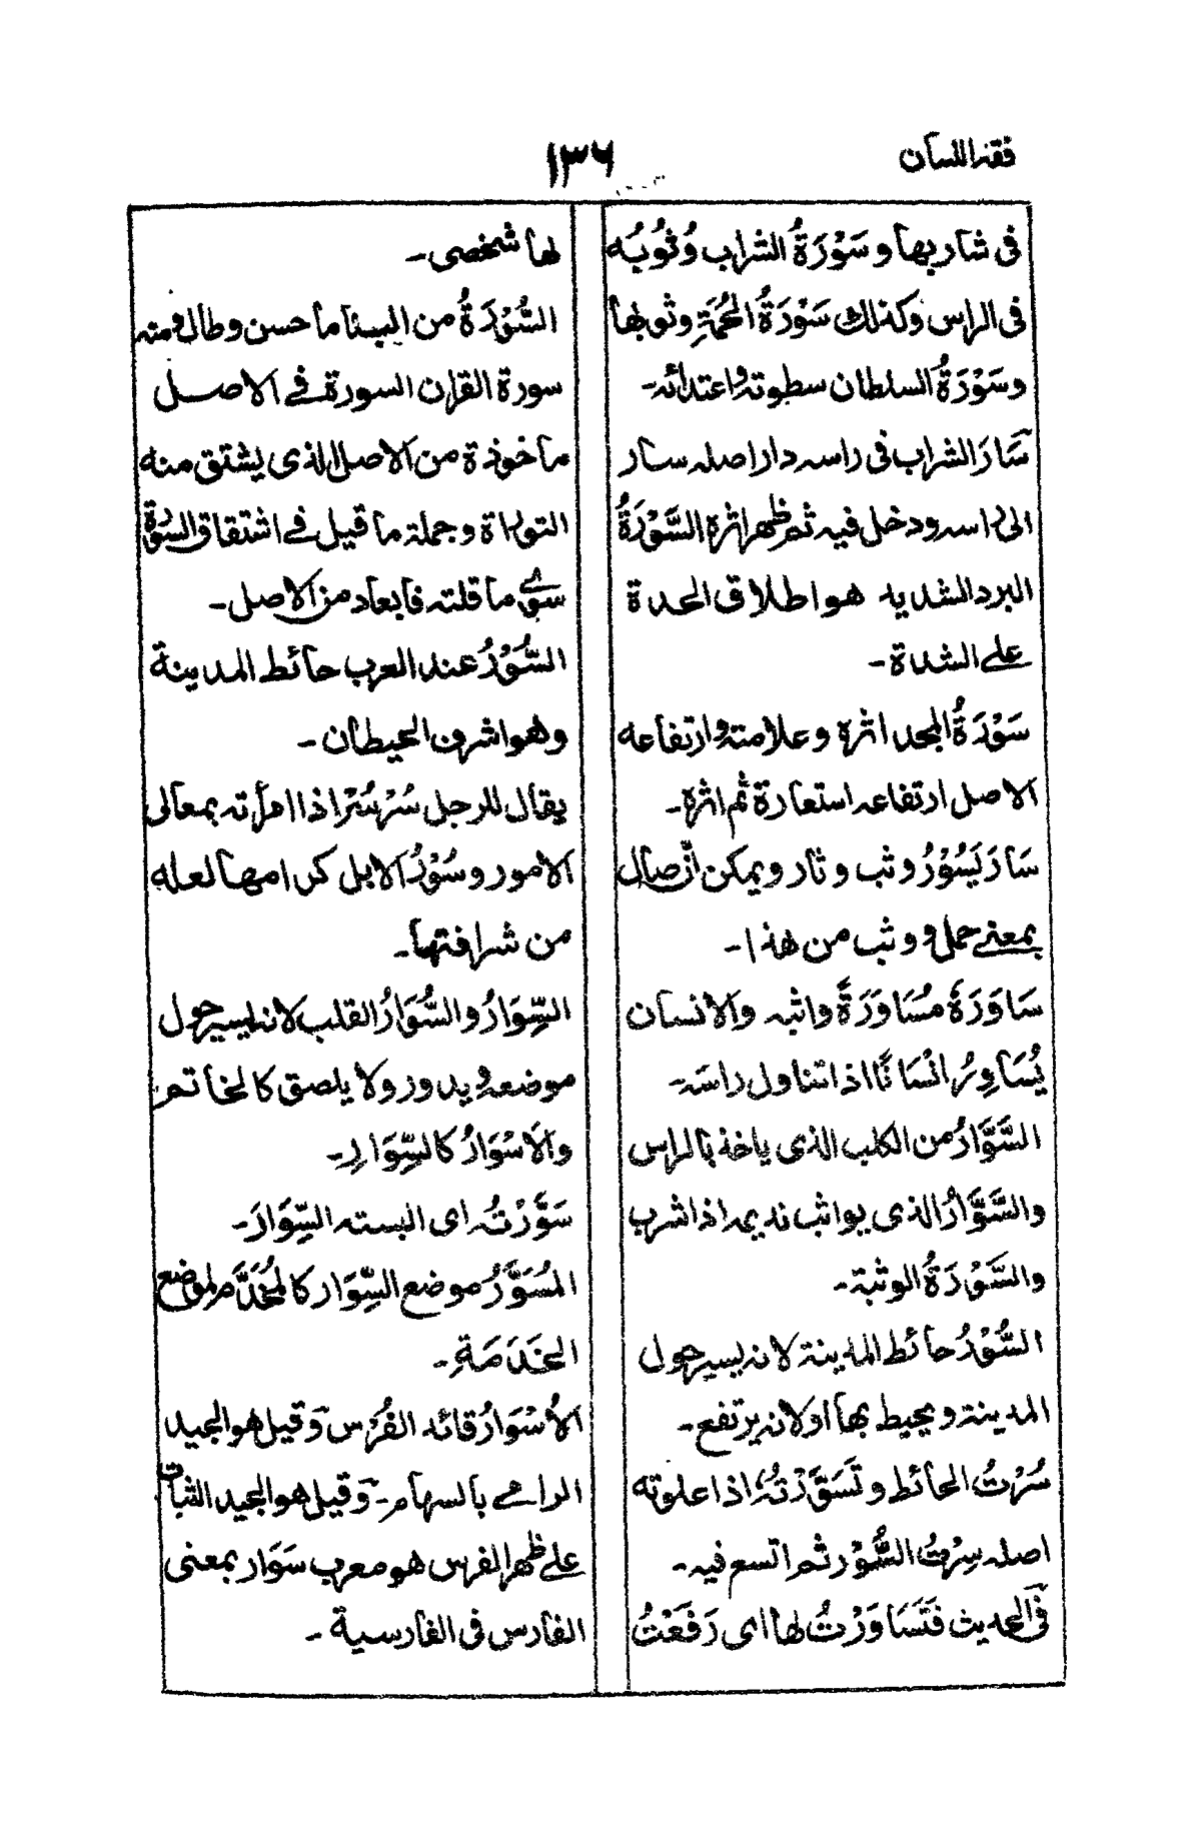 فقه اللسان
١٣٦
فى شاربها و سَوْرَةُ الشراب وُثُوبُه
فى الراس وكذلك سَوْرَةُ الحُمَةِ وثوبها
وسَوْرَةُ السلطان سطوته واعتدائه-
سَارَ الشراب فى راسه دار اصله سار
الى راسه ودخل فيه ثم ظهر اثره السَّوْرَةُ
البرد الشديد هو اطلاق الحدة
على الشدة -
سَوْرَةُ المجد اثره وعلامته وارتفاعه
الاصل ارتفاعه استعارة ثم اثره-
سَارَ يَسُوْرُ وثب وثار ويمكن أنّ صال
بمعنى حمل ووثب من هذا-
سَاوَرَهٗ مُسَاوَرَةً واثبه والانسان
يُسَاوِرُ انْسَانًا اذا تناول راسَه-
السَّوَّارُ من الكلب الذى ياخذ بالراس
والسَّوَّارُ الذى يواثب نديمه اذا شرب
والسَّوْرَةُ الوثبة-
السُّوْرُ حائط المدينة لانه يسير حول
المدينة ويحيط بها اولانه يرتفع-
سُرْتُ الحائط و تَسَوَّرْتُهٗ اذا علوته
اصله سِرْتُ السُّوْر ثم اتسع فيه-
فى الحديث فَتَسَاوَرْتُ لها اى رَفَعْتُ
لها شخصى-
السُّوْرَةُ من البناء ما حسن وطال ومنه
سورة القران السورة فى الاصل
ماخوذة من الاصل الذى يشتق منه
التوراة وجملة ما قيل فى اشتقاق السورة
سوى ما قلته فابعاد من الاصل-
السُّوْرُ عند العرب حائط المدينة
وهو اشرف الحيطان-
يقال للرجل سُرْ سُرْ اذا امرته بمعالى
الامور و سُوْرُ الابل كرامها لعله
من شرافتها-
السِّوَارُ والسُّوَارُ القلب لانه يسير حول
موضعه ويدور ولا يلصق كالخاتم
والاَسْوَارُ كالسِّوَارِ-
سَوَّرْتُه اى البسته السِّوَارَ-
المُسَوَّرُ موضع السِّوَار كالمُخَدَّم لموضع
الخَدَمَةِ-
الأُسْوَارُ قائد الفُرْس وقيل هو الجيد
الرامى بالسهام- وقيل هو الجيد الثبات
على ظهر الفرس هو معرب سَوَار بمعنى
الفارس فى الفارسية -